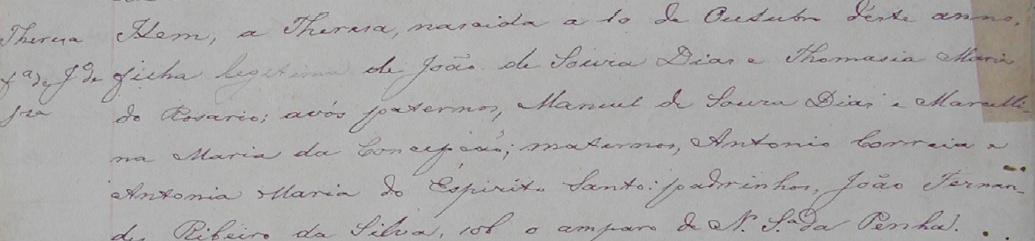 Theresa Item, a Theresa, nascida a 10 de Outubro d'este anno,
fª de Jº de filha legitima de João de Souza Dias e Thomasia Maria
do Rosario; avós paternos, Manuel de Souza Dias e Marcelli-
na Maria da Conceição; maternos, Antonio Correia e
Antonia Maria do Espirito Santo: padrinhos, João Fernan-
des Ribeiro da Silva, sob o amparo de N. Sª da Penha.